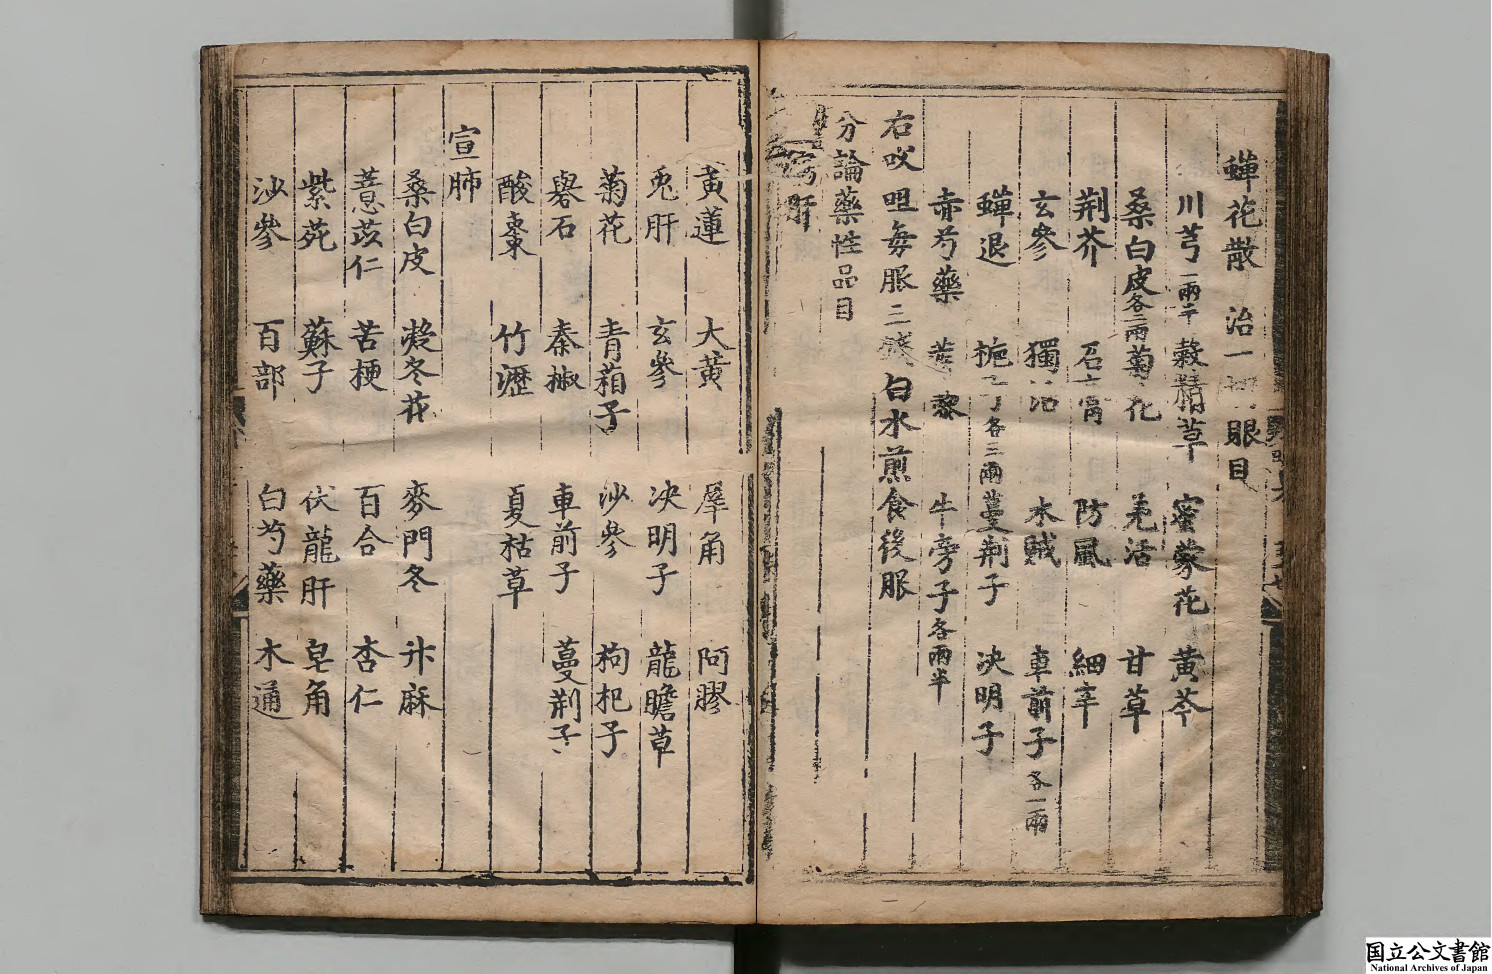 蟬花散　治一切眼目
川芎一兩半　穀精草　蜜蒙花　黃芩
桑白皮各二兩　菊花　羌活　甘草
荆芥　石膏　防風　細辛
玄參　獨活　木賊　車前子各一兩
蟬退　梔子各三兩　蔓荆子　決明子
赤芍藥　蔾　牛旁子各兩半
右㕮咀每服三錢白水煎食後服
分論藥性品目
肝
黃蓮　大黃　犀角　阿膠
兎肝　玄參　決明子　龍膽草
菊花　青葙子　沙參　枸杞子
礜石　秦椒　車前子　蔓荆子
酸棗　竹瀝　夏枯草
宣肺
桑白皮　欵冬花　麥門冬　升麻
薏苡仁　苦梗　百合　杏仁
紫菀　蘇子　伏龍肝　皂角
沙參　百部　白芍藥　木通
国立公文書館
National Archives of Japan